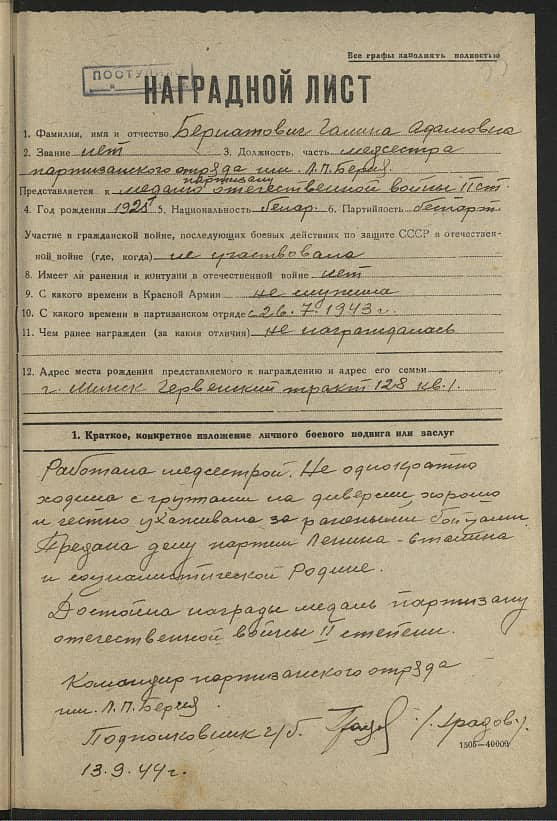 Все графы заполнять полностью
ПОСТУПИЛО
НАГРАДНОЙ ЛИСТ
1. Фамилия, имя и отчество Бернатович Галина Адамовна
2. Звание нет 3. Должность, часть медсестра
партизанского отряда им. Л.П.Берия.
партизану
Представляется к медалью отечественной войны II ст.
4. Год рождения 1925 5. Национальность белар. 6. Партийность беспарт.
Участие в гражданской войне, последующих боевых действиях по защите СССР в отечествен-
ной войне (где, когда) не участвовала
8. Имеет ли ранения и контузии в отечественной войне нет
9. С какого времени в Красной Армии не служила
10. С какого времени в партизанском отряде с 26.7.1943 г.
11. Чем ранее награжден (за какия отличия) не награждалась
12. Адрес места рождения представляемого к награждению и адрес его семьи
г. Минск Червенский тракт 128 кв. 1.
1. Краткое, конкретное изложение личного боевого подвига или заслуг
Работала медсестрой. Не однократно
ходила с группами на диверсии, хорошо
и честно ухаживала за ранеными бойцами.
Предана делу партии Ленина-Сталина
и социалистической Родине.
Достойна награды медаль партизану
отечественной войны II степени.
Командир партизанского отряда
им. Л.П.Берия.
Подполковник г/б. /Градов/.
1505—40000
13.9.44г.